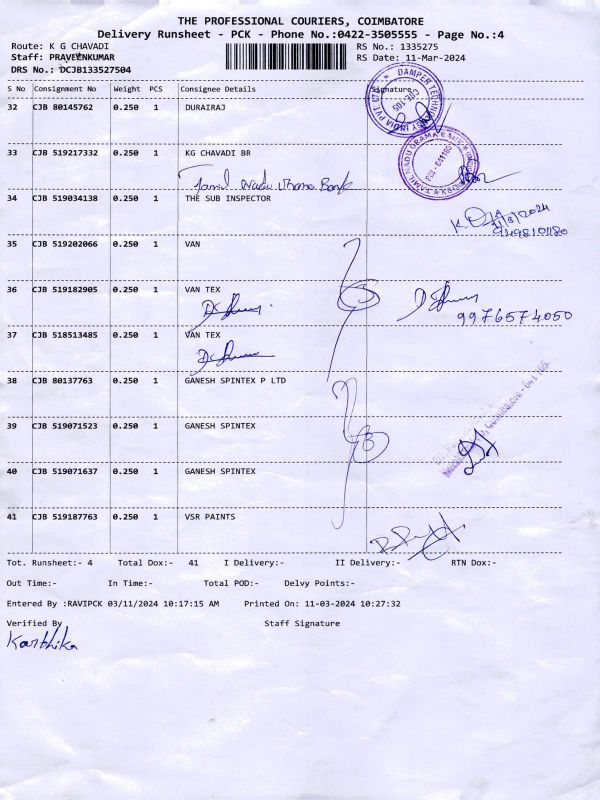 THE PROFESSIONAL COURIERS, COIMBATORE
Delivery Runsheet - PCK - Phone No.:0422-3505555 - Page No.:4
Route: K G CHAVADI
RS No.: 1335275
Staff: PRAVEENKUMAR
RS Date: 11-Mar-2024
DRS No.: DCJB133527504
S No Consignment No Weight PCS Consignee Details Signature
32 CJB 80145762 0.250 1 DURAIRAJ
DAMPER TECHNOLOGY INDIA PVT. LTD.
CBE-105
33 CJB 519217332 0.250 1 KG CHAVADI BR
Tamil Nadu Grama Bank
34 CJB 519034138 0.250 1 THE SUB INSPECTOR
35 CJB 519202066 0.250 1 VAN
36 CJB 519182905 0.250 1 VAN TEX
9976574050
37 CJB 518513485 0.250 1 VAN TEX
38 CJB 80137763 1 GANESH SPINTEX P LTD
39 CJB 519071523 0.250 1 GANESH SPINTEX
40 CJB 519071637 0.250 1 GANESH SPINTEX
41 CJB 519187763 0.250 1 VSR PAINTS
Tot. Runsheet:- 4 Total Dox:- 41 I Delivery:- II Delivery:- RTN Dox:-
Out Time:- In Time:- Total POD:- Delvy Points:-
Entered By :RAVIPCK 03/11/2024 10:17:15 AM Printed On: 11-03-2024 10:27:32
Verified By Staff Signature
Karthika